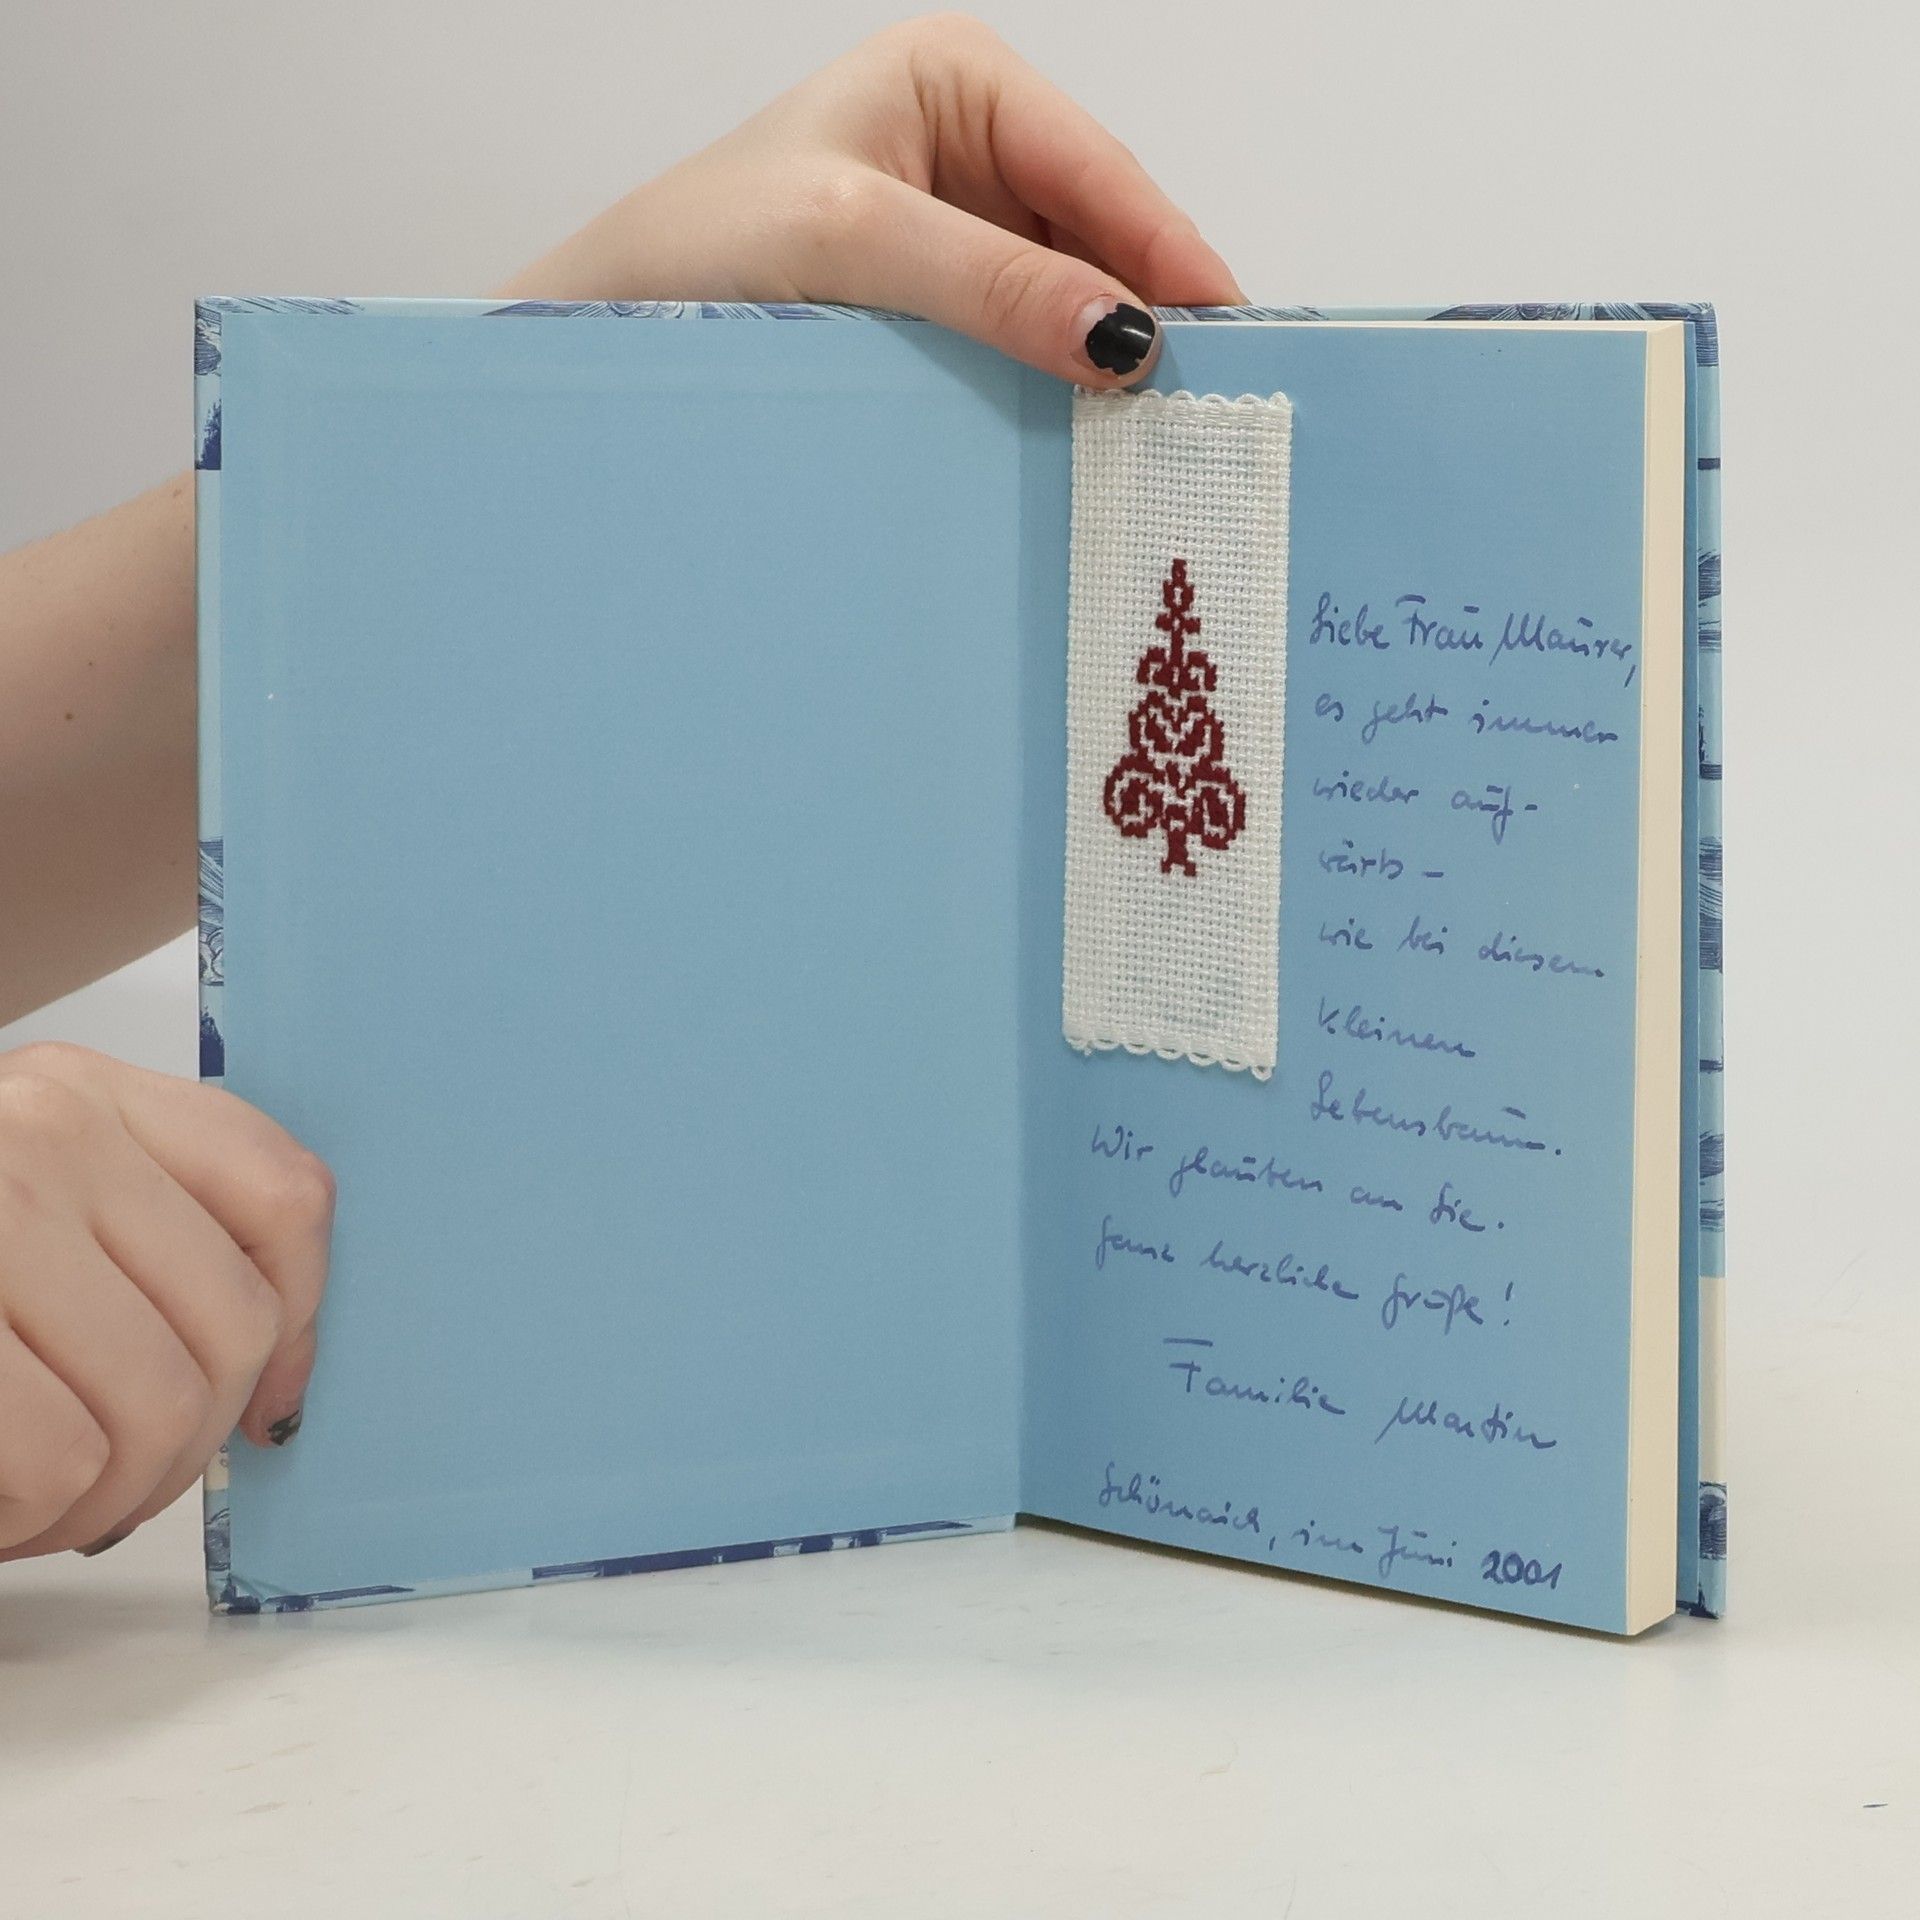 Liebe Frau Maurer,
es geht immer
wieder auf-
wärts -
wie bei diesem
kleinen
Lebensbaum.
Wir glauben an Sie.
Ganz herzliche Grüße!
Familie Martin
Schönaich, im Juni 2001